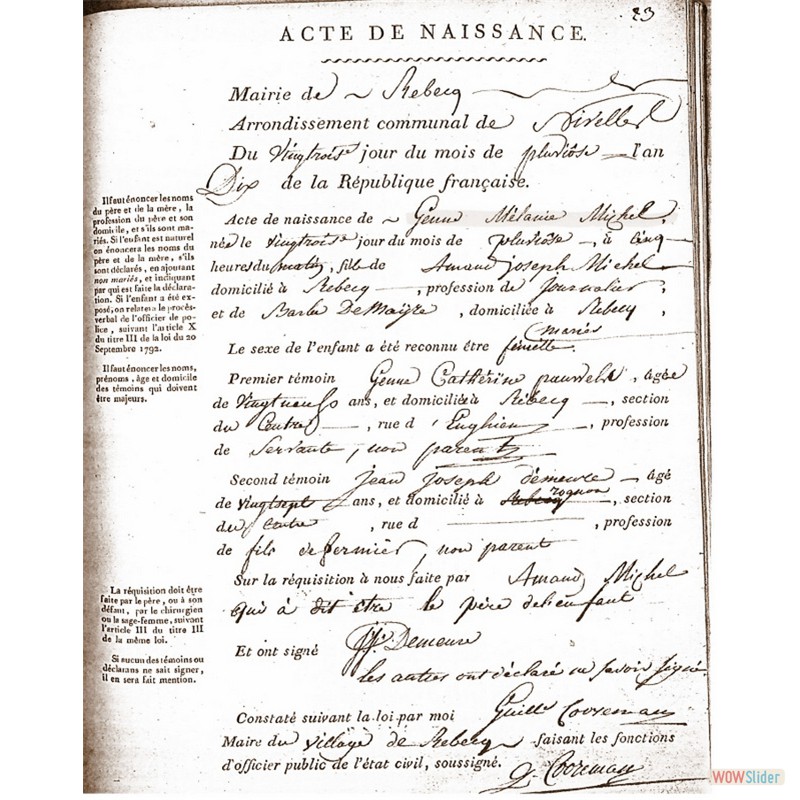 23
ACTE DE NAISSANCE.
Mairie de Rebecq
Arrondissement communal de Nivelles
Du vingtrois jour du mois de pluviose l'an
Dix de la République française.
Il faut énoncer les noms
du père et de la mère, la
profession du père et son
domicile, et s'ils sont ma-
riés. Si l'enfant est naturel
on énoncera les noms du
père et de la mère, s'ils
sont déclarés, en ajoutant
non mariés, et indiquant
par qui est faite la déclara-
tion. Si l'enfant a été ex-
posé, on relatera le procès-
verbal de l'officier de po-
lice, suivant l'article X
du titre III de la loi du 20
Septembre 1792.
Il faut énoncer les noms,
prénoms, âge et domicile
des témoins qui doivent
être majeurs.
Acte de naissance de Genne Mélanie Michel,
née le vingtrois jour du mois de pluviose, à cinq
heures du matin, fille de Amand joseph Michel
domicilié à Rebecq, profession de journalier,
et de Barbe DeMayre, domiciliée à Rebecq,
mariés
Le sexe de l'enfant a été reconnu être fémelle.
Premier témoin Genne Catherine pauwels, âgée
de vingtneuf ans, et domiciliée à Rebecq, section
du Centre, rue d'Enghien, profession
de Servante, non parent
Second témoin jean joseph demeure âgé
rognon
de vingtsept ans, et domicilié à Rebecq, section
du Centre, rue d , profession
de fils de fermier, non parent
La réquisition doit être
faite par le père, ou à son
défaut, par le chirurgien
ou la sage-femme, suivant
l'article III du titre III
de la même loi.
Sur la réquisition à nous faite par Amand Michel
qui à dit être le père de lenfant
Si aucun des témoins ou
déclarans ne sait signer,
il en sera fait mention.
Et ont signé JJ. Demeure
les autres ont déclaré ne savoir signé.
Constaté suivant la loi par moi Guille Cooreman
Maire du village de Rebecq faisant les fonctions
d'officier public de l'état civil, soussigné.
g. Cooreman
WOWSlider